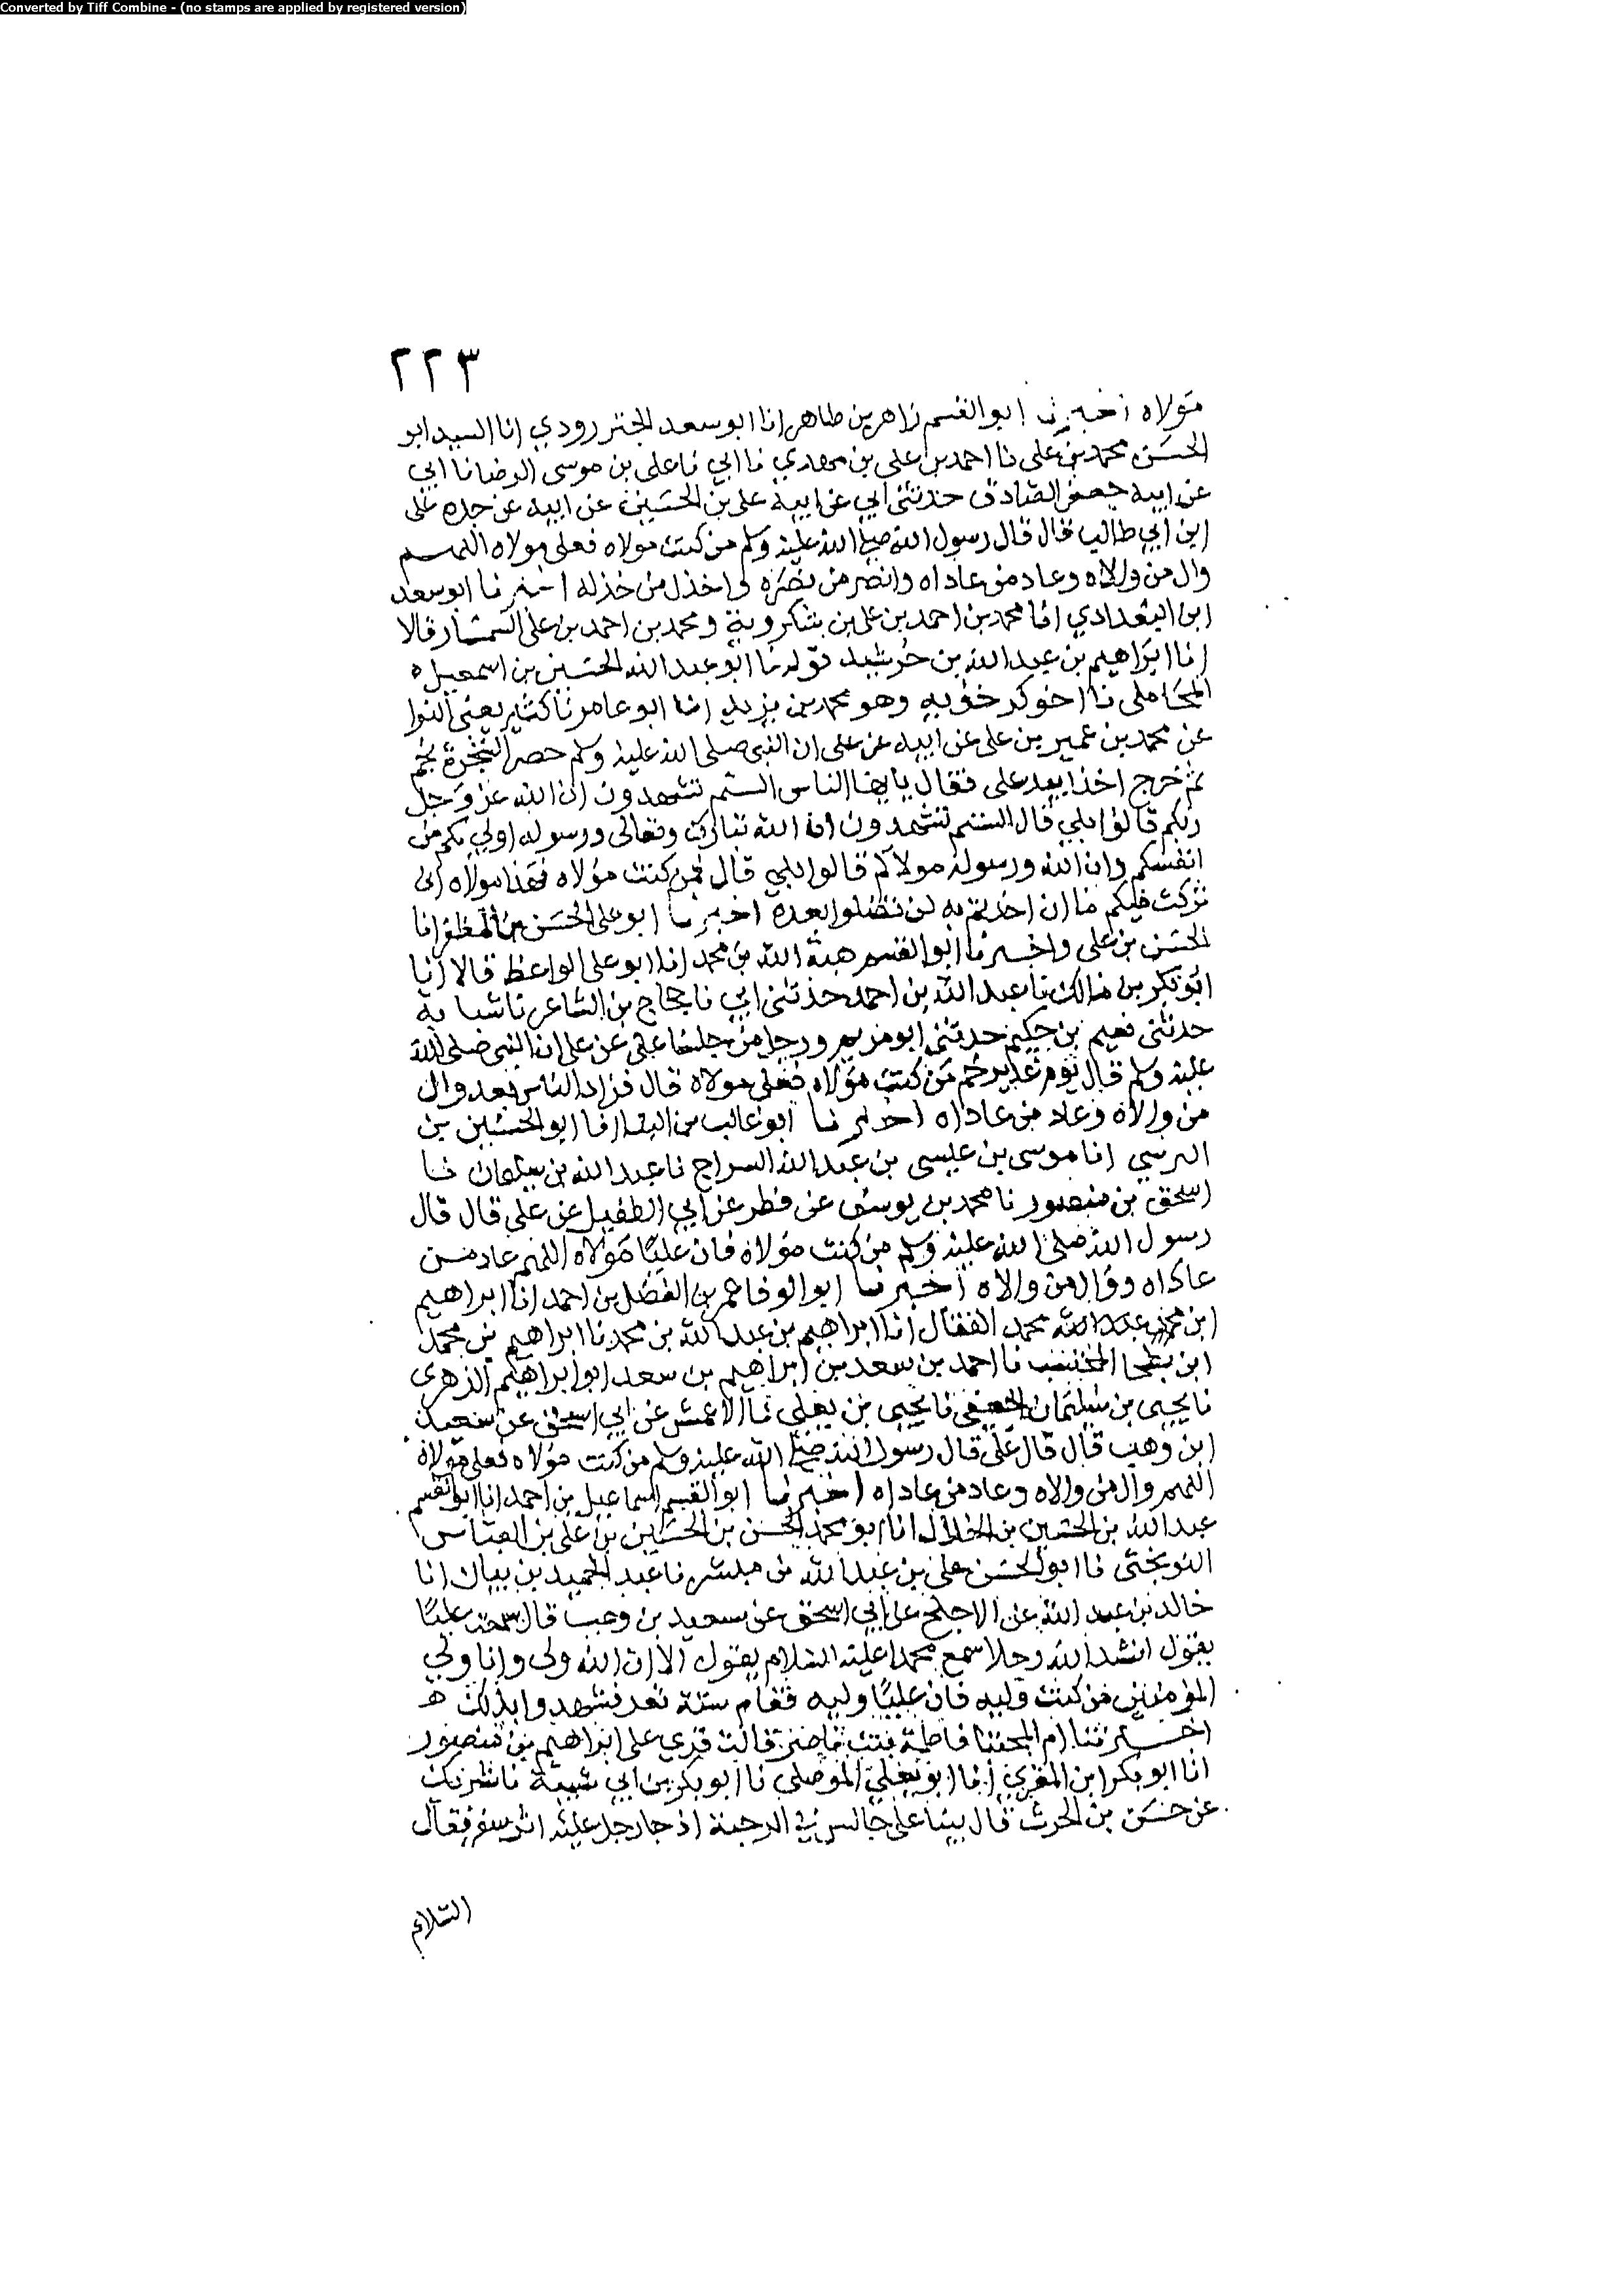 Converted by Tiff Combine - (no stamps are applied by registered version)
٢٢٣
مولاه اخبرنا ابو القسم زاهر بن طاهر انا ابو سعد الجنزرودي انا السيد ابو
الحسن محمد بن علي نا احمد بن علي بن مهدي نا ابي نا علي بن موسى الرضا نا ابي
عن ابيه جعفر الصادق حدثني ابي عن ابيه علي بن الحسين عن ابيه عن جده علي
ابن ابي طالب قال قال رسول الله صلى الله عليه وسلم من كنت مولاه فعلي مولاه اللهم
وال من والاه وعاد من عاداه وانصر من نصره واخذل من خذله اخبرنا ابو سعد
ابن البغدادي انا محمد بن احمد بن علي بن شكرويه ومحمد بن احمد بن علي السمسار قالا
انا ابراهيم بن عبد الله بن خرشيد قوله نا ابو عبد الله الحسين بن اسمعيل
المحاملي نا اخو كرخويه وهو محمد بن يزيد انا ابو عامر نا كثير يعني النوا
عن محمد بن عمير بن علي عن ابيه عن علي ان النبي صلى الله عليه وسلم حضر الشجرة بخم
ثم خرج اخذا بيد علي فقال يايها الناس الستم تشهدون ان الله عز وجل
ربكم قالوا بلي قال الستم تشهدون ان الله تبارك وتعالى ورسوله اولي بكم من
انفسكم وان الله ورسوله مولاكم قالوا بلي قال فمن كنت مولاه فهذا مولاه اني
تركت فيكم ما ان اخذتم به لن تضلوا بعده اخبرنا ابو علي الحسن بن المظفر انا
الحسن بن علي واخبرنا ابو القسم هبة الله بن محمد انا ابو علي الواعظ قالا انا
ابو بكر بن مالك نا عبد الله بن احمد حدثني ابي نا حجاج بن الشاعر نا شبابه
حدثني نعيم بن حكيم حدثني ابو مريم ورجل من جلسا علي عن علي ان النبي صلى الله
عليه وسلم قال يوم غدير خم من كنت مولاه فعلي مولاه قال فزاد الناس بعد وال
من والاه وعاد من عاداه اخبرنا ابو غالب بن البنا انا ابو الحسين بن
النرسي انا موسى بن عيسى بن عبد الله السراج نا عبد الله بن سليمان نا
اسحق بن منصور نا محمد بن يوسف عن فطر عن ابي الطفيل عن علي قال قال
رسول الله صلى الله عليه وسلم من كنت مولاه فان عليا مولاه اللهم عاد من
عاداه ووال من والاه اخبرنا ابو الوفا عمر بن الفضل بن احمد انا ابراهيم
ابن محمد القفال انا ابراهيم بن عبد الله بن محمد نا ابراهيم بن محمد
ابن بطحا المحتسب نا احمد بن سعد بن ابراهيم بن سعد ابو ابراهيم الزهري
نا يحيى بن سليمان الجعفي نا يحيى بن يعلي نا الاعمش عن ابي اسحق عن سعيد
ابن وهب قال قال علي قال رسول الله صلى الله عليه وسلم من كنت مولاه فعلي مولاه
اللهم وال من والاه وعاد من عاداه اخبرنا ابو القسم اسماعيل بن احمد انا ابو القسم
عبد الله بن الحسين بن الخلال انا ابو محمد الحسن بن الحسين بن علي بن العباس
النوبختي نا ابو الحسن علي بن عبد الله بن مبشر نا عبد الحميد بن بيان انا
خالد بن عبد الله عن الاجلح عن ابي اسحق عن سعيد بن وهب قال سمعت عليا
يقول انشد الله رجلا سمع محمدا عليه السلام يقول الا ان الله ولي وانا ولي
المؤمنين فمن كنت وليه فان عليا وليه فقام ستة نفر فشهدوا بذلك ه
اخبرتنا ام المجتبا فاطمة بنت ناصر قالت قري على ابراهيم بن منصور
انا ابو بكر ابن المقري انا ابو يعلي الموصلي نا ابو بكر بن ابي شيبة نا شريك
عن حنش بن الحرث قال بينا علي جالس في الرحبة اذ جا رجل عليه اثر سفر فقال
السلام